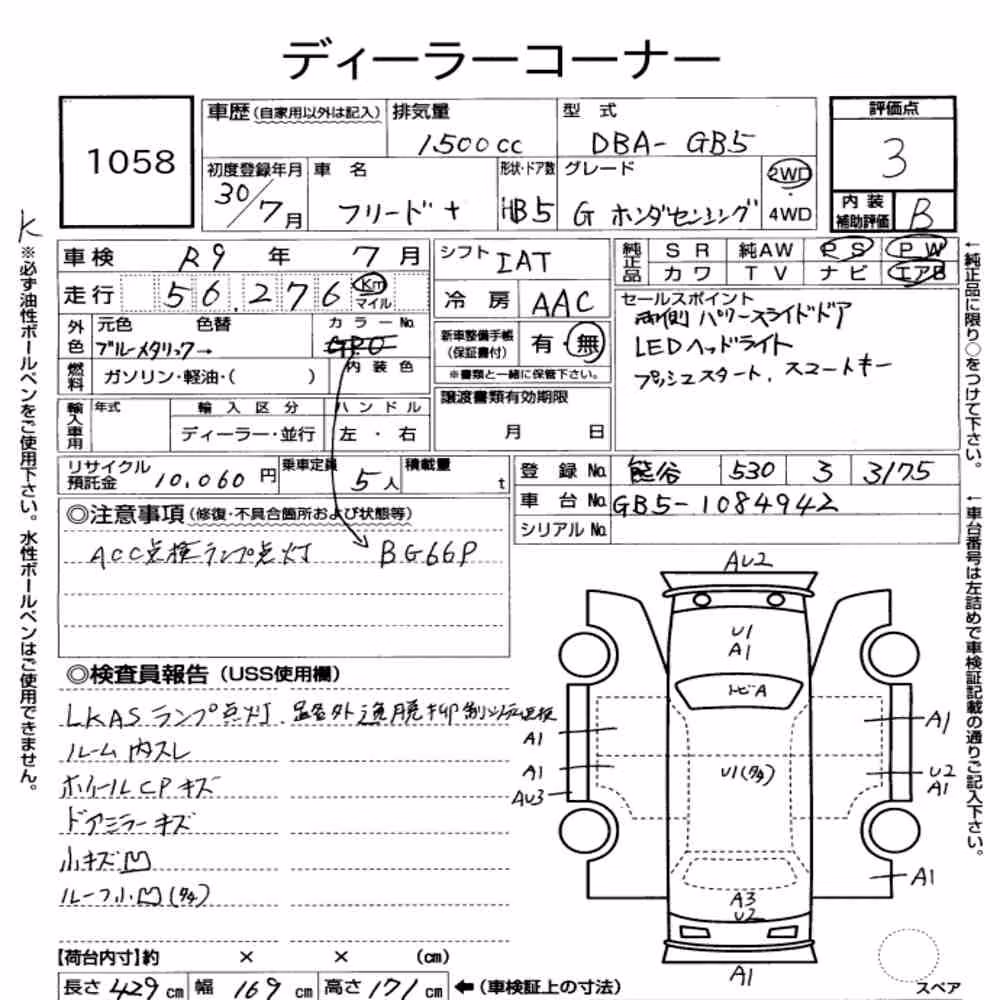 ディーラーコーナー
1058
車歴(自家用以外は記入) 排気量 型式 評価点
1500cc DBA- GB5 3
初度登録年月 車名 形状・ドア数 グレード 2WD
30/7月 フリード+ HB5 G ホンダセンシング 4WD
内装補助評価 B
K
※必ず油性ボールペンをご使用下さい。水性ボールペンはご使用できません。
車検 R9年 7月 シフト IAT
純正品 SR 純AW PS PW
カワ TV ナビ エアB
走行 56,276 Km マイル
冷房 AAC
セールスポイント
両側パワースライドドア
LEDヘッドライト
プッシュスタート、スマートキー
外色 元色 色替 カラーNo.
ブルーメタリック→
内装色
燃料 ガソリン・軽油・( )
新車整備手帳(保証書付) 有・無
※書類と一緒に保管下さい。
輸入車用 年式 輸入区分 ハンドル
ディーラー・並行 左・右
譲渡書類有効期限
月 日
←純正品に限り○をつけて下さい。
リサイクル預託金 10,060円 乗車定員 5人 積載量 t
登録No. 熊谷 530 3 3175
車台No. GB5-1084942
シリアルNo.
←車台番号は左詰めで車検証記載の通りご記入下さい。
◎注意事項(修復・不具合箇所および状態等)
ACC点検ランプ点灯 BG66P
◎検査員報告(USS使用欄)
LKASランプ点灯、路外逸脱抑制システム点検
ルーム内スレ
ホイールCPキズ
ドアミラーキズ
小キズ凹
ルーフ小凹(多々)
AU2
U1
A1
トビA
A1
A1
A1
U1(多々)
U2
A1
AU3
A1
A3
U2
A1
スペア
【荷台内寸】約 × × (cm)
長さ 429cm 幅 169cm 高さ 171cm ←(車検証上の寸法)